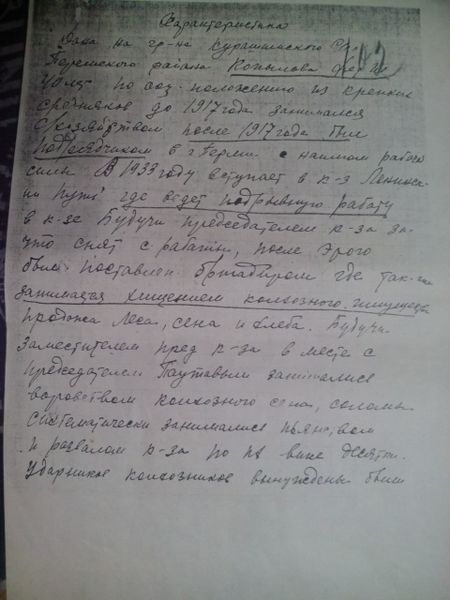 Характеристика
Дана на гр-на Курашимского с/с
Пермского района Копылова
По соц. положению из крепких
середняков до 1917 года занимался
с хозяйством после 1917 года был
подрядчиком в г Перми с наймом рабоч
силы В 1933 году вступает в к-з Ленинс-
ий путь где ведет подрывную работу
в к-зе Будучи председателем к-за за-
что снят с работы, после этого
был поставлен бригадиром где так-же
занимается хищением колхозного имущества
продажа леса, сена и хлеба. Будучи
заместителем пред к-за в месте с
председателем Паутовым занимался
воровством колхозного сена, соломы
систематически занимался пьянством
и развалом к-за по их вине десятки
ударников колхозников вынуждены были